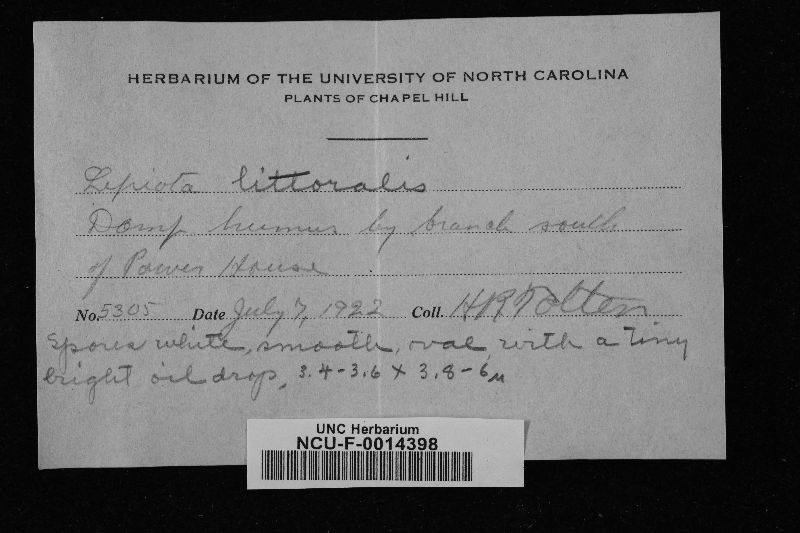 HERBARIUM OF THE UNIVERSITY OF NORTH CAROLINA
PLANTS OF CHAPEL HILL
Lepiota littoralis
Damp humus by branch south
of Power House
No. 5305 Date July 7, 1922 Coll. H R Totten
Spores white, smooth, oval, with a tiny
bright oil drop, 3.4-3.6 x 3.8-6µ
UNC Herbarium
NCU-F-0014398